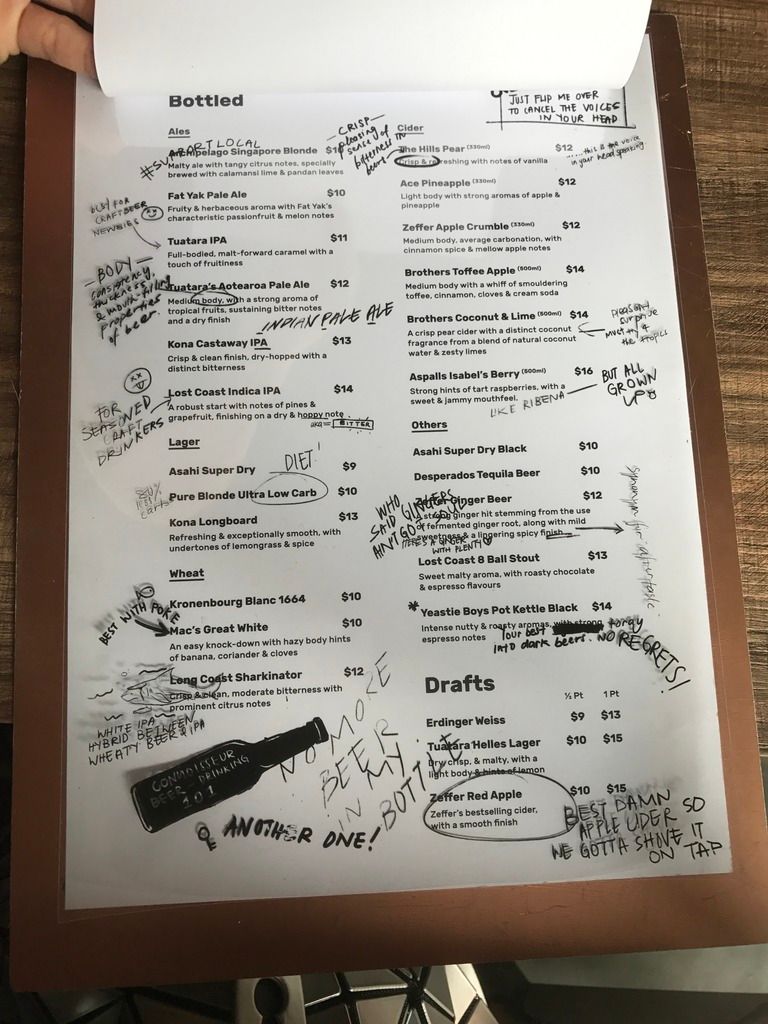 Bottled
JUST FLIP ME OVER
TO CANCEL THE VOICES
IN YOUR HEAD
Ales
#SUPPORTLOCAL
Archipelago Singapore Blonde $10
Malty ale with tangy citrus notes, specially
brewed with calamansi lime & pandan leaves
Fat Yak Pale Ale $10
Fruity & herbaceous aroma with Fat Yak's
characteristic passionfruit & melon notes
CRAFT BEER
NEWBIES
Tuatara IPA $11
Full-bodied, malt-forward caramel with a
touch of fruitiness
- BODY -
consistency,
thickness
& mouth-filling
properties
of beer.
Tuatara's Aotearoa Pale Ale $12
Medium body, with a strong aroma of
tropical fruits, sustaining bitter notes
and a dry finish
INDIAN PALE ALE
Kona Castaway IPA $13
Crisp & clean finish, dry-hopped with a
distinct bitterness
Lost Coast Indica IPA $14
A robust start with notes of pines &
grapefruit, finishing on a dry & hoppy note
aka = BITTER
FOR
SEASONED
CRAFT
DRINKERS
Lager
DIET!
Asahi Super Dry $9
Pure Blonde Ultra Low Carb $10
Kona Longboard $13
Refreshing & exceptionally smooth, with
undertones of lemongrass & spice
Wheat
Kronenbourg Blanc 1664 $10
BEST WITH POKE
Mac's Great White $10
An easy knock-down with hazy body hints
of banana, coriander & cloves
Long Coast Sharkinator $12
Crisp & clean, moderate bitterness with
prominent citrus notes
WHITE IPA
HYBRID BETWEEN
WHEATY BEER & IPA
CONNOISSEUR
BEER-DRINKING
101
NO MORE
BEER
IN MY
BOTTLE
ANOTHER ONE!
- CRISP -
pleasing
sense of
bitterness in
beer
Cider
The Hills Pear (330ml) $12
Crisp & refreshing with notes of vanilla
.....this is the voice
in your head speaking
Ace Pineapple (330ml) $12
Light body with strong aromas of apple &
pineapple
Zeffer Apple Crumble (330ml) $12
Medium body, average carbonation, with
cinnamon spice & mellow apple notes
Brothers Toffee Apple (500ml) $14
Medium body with a whiff of smouldering
toffee, cinnamon, cloves & cream soda
Brothers Coconut & Lime (500ml) $14
A crisp pear cider with a distinct coconut
fragrance from a blend of natural coconut
water & zesty limes
Aspalls Isabel's Berry (500ml) $16
Strong hints of tart raspberries, with a
sweet & jammy mouthfeel.
LIKE RIBENA
BUT ALL
GROWN
UP
Others
Asahi Super Dry Black $10
Desperados Tequila Beer $10
Zeffer Ginger Beer $12
A strong ginger hit stemming from the use
of fermented ginger root, along with mild
sweetness & a lingering spicy finish
WHO
SAID GINGERS
AIN'T GOT SOUL
HERE'S A GINGER
WITH PLENTY
synonym for aftertaste
Lost Coast 8 Ball Stout $13
Sweet malty aroma, with roasty chocolate
& espresso flavours
* Yeastie Boys Pot Kettle Black $14
Intense nutty & roasty aromas, with strong
espresso notes
Your best forgy
into dark beers. NO REGRETS!
Drafts
½ Pt 1 Pt
Erdinger Weiss $9 $13
Tuatara Helles Lager $10 $15
Dry crisp, & malty, with a
light body & hints of lemon
Zeffer Red Apple $10 $15
Zeffer's bestselling cider,
with a smooth finish
BEST DAMN
APPLE CIDER SO
WE GOTTA SHOVE IT
ON TAP